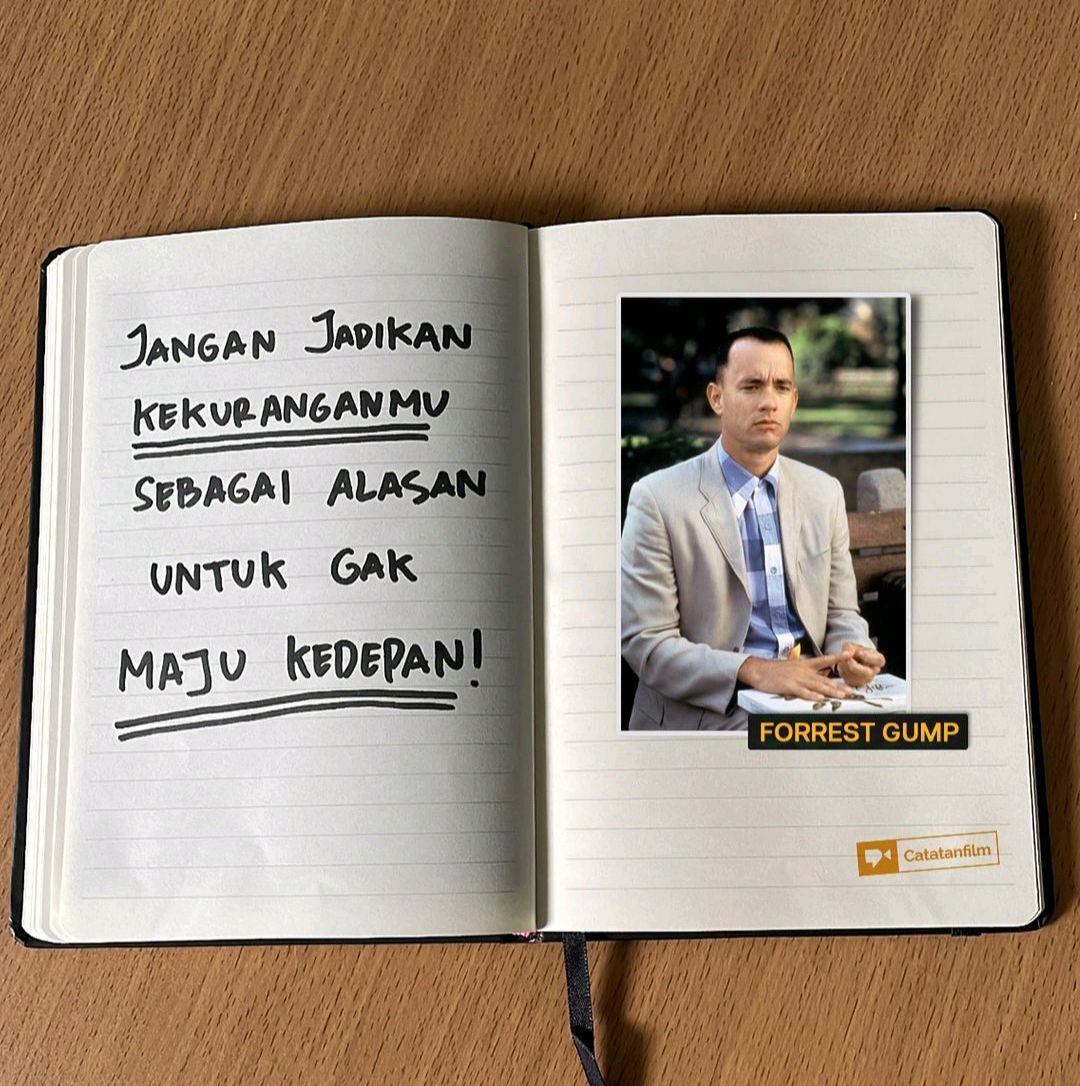 JANGAN JADIKAN
KEKURANGANMU
SEBAGAI ALASAN
UNTUK GAK
MAJU KEDEPAN!
FORREST GUMP
Catatanfilm